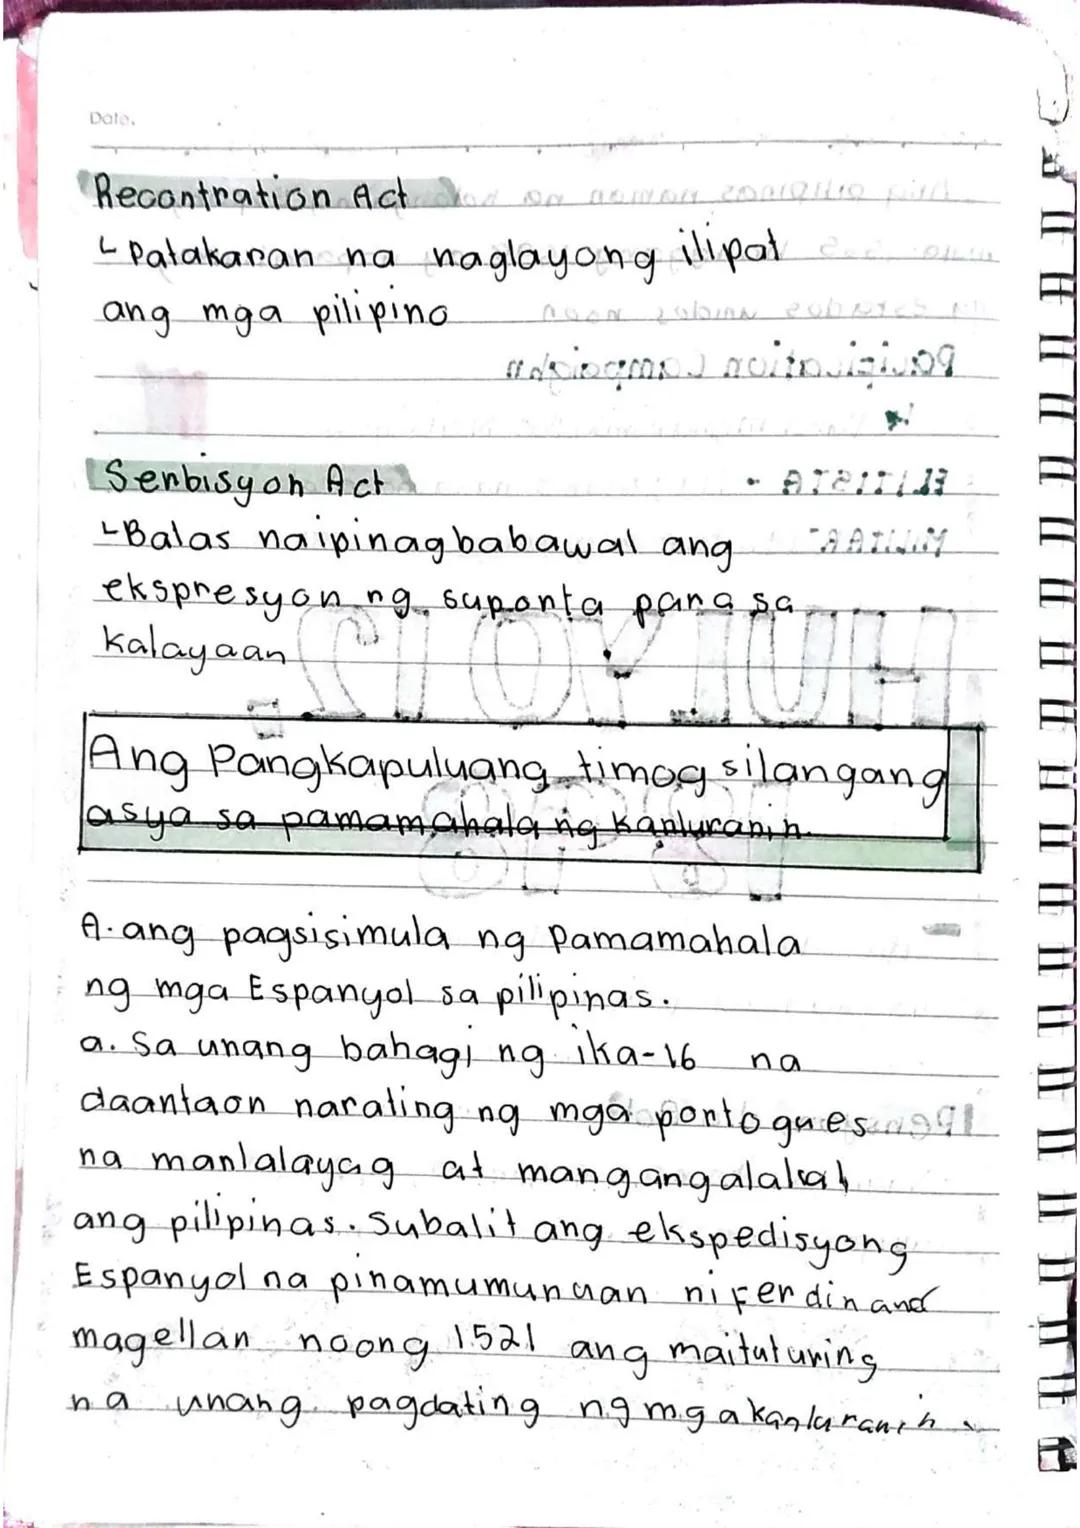 Date.
Recontration Act
Patakaran na naglayong ilipat
ang mga pilipino
Senbisyon Act
Balas naipinagbabawal ang
ekspresyon ng suponta para sa
kalayaan
Ang Pangkapuluang timog silangang
asya sa pamamahala ng kanluranin.
A. ang pagsisimula ng Pamamahala
ng mga Espanyol sa pilipinas.
a. Sa unang bahagi ng ika-16 na
daantaon narating ng mga portogues
na manlalayag at mangangalakal
ang pilipinas. Subalit ang ekspedisyong
Espanyol na pinamumunuan ni Ferdinand
magellan noong 1521 ang maituturing
na unang pagdating ng mga kanluranin